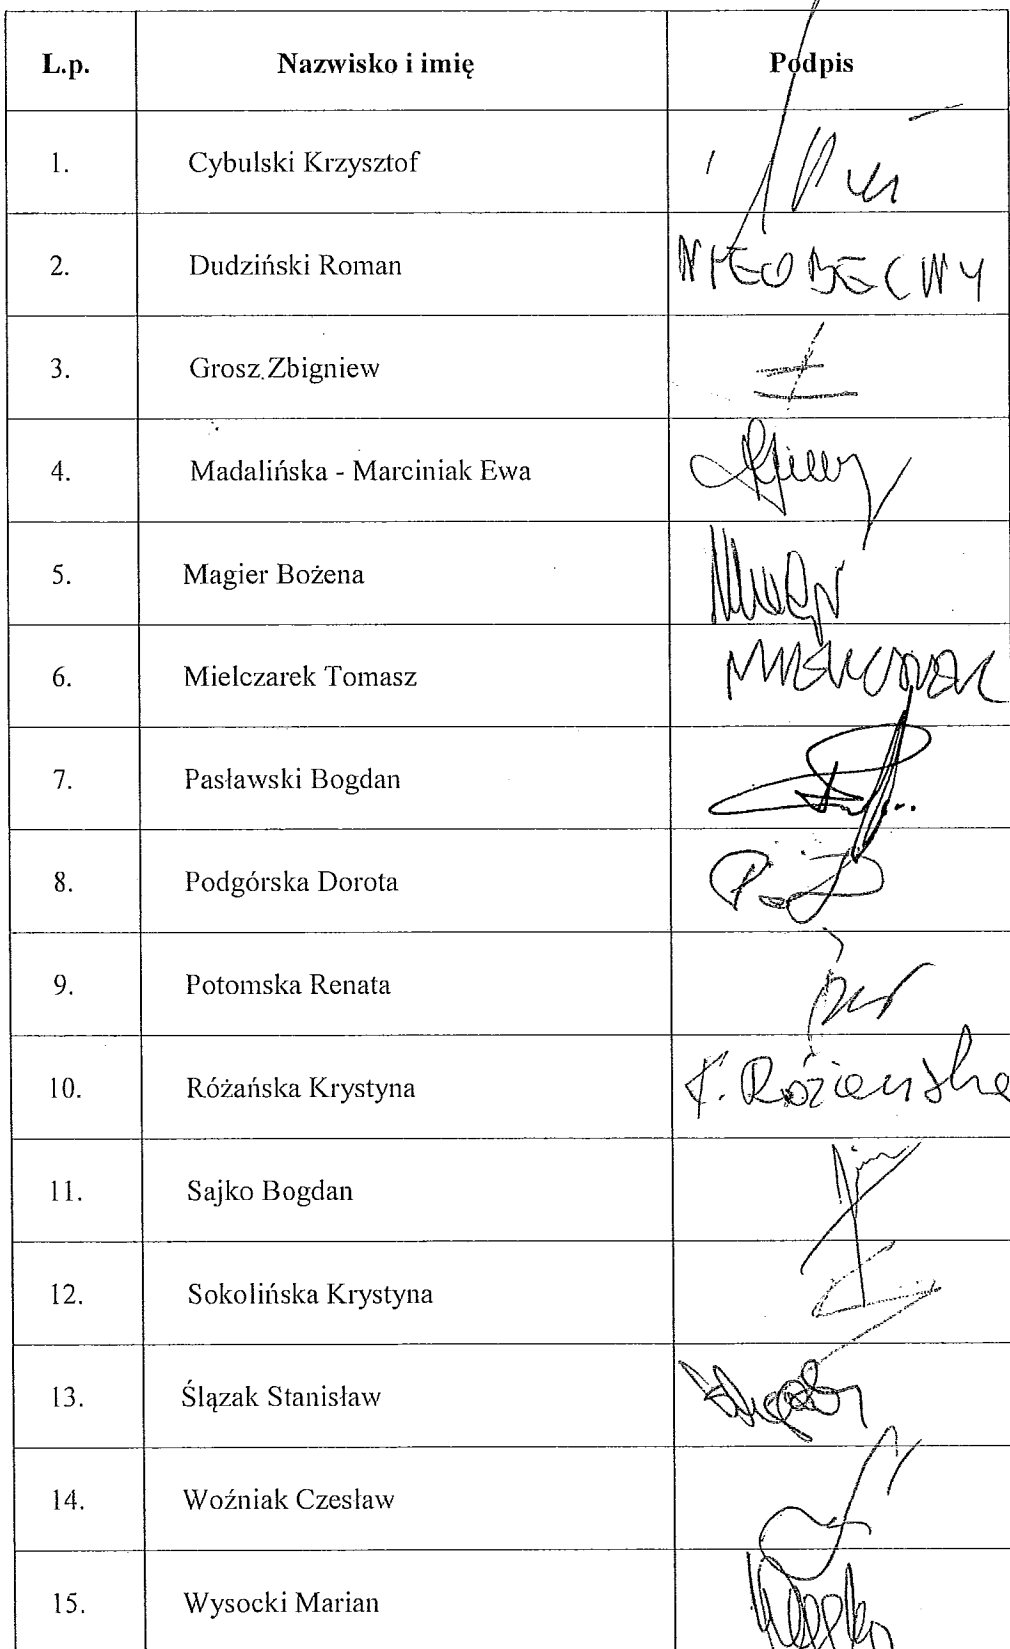 L.p. Nazwisko i imię Podpis
1. Cybulski Krzysztof
2. Dudziński Roman NIEOBECNY
3. Grosz Zbigniew
4. Madalińska - Marciniak Ewa
5. Magier Bożena
6. Mielczarek Tomasz
7. Pasławski Bogdan
8. Podgórska Dorota
9. Potomska Renata
10. Różańska Krystyna K. Różańska
11. Sajko Bogdan
12. Sokolińska Krystyna
13. Ślązak Stanisław
14. Woźniak Czesław
15. Wysocki Marian